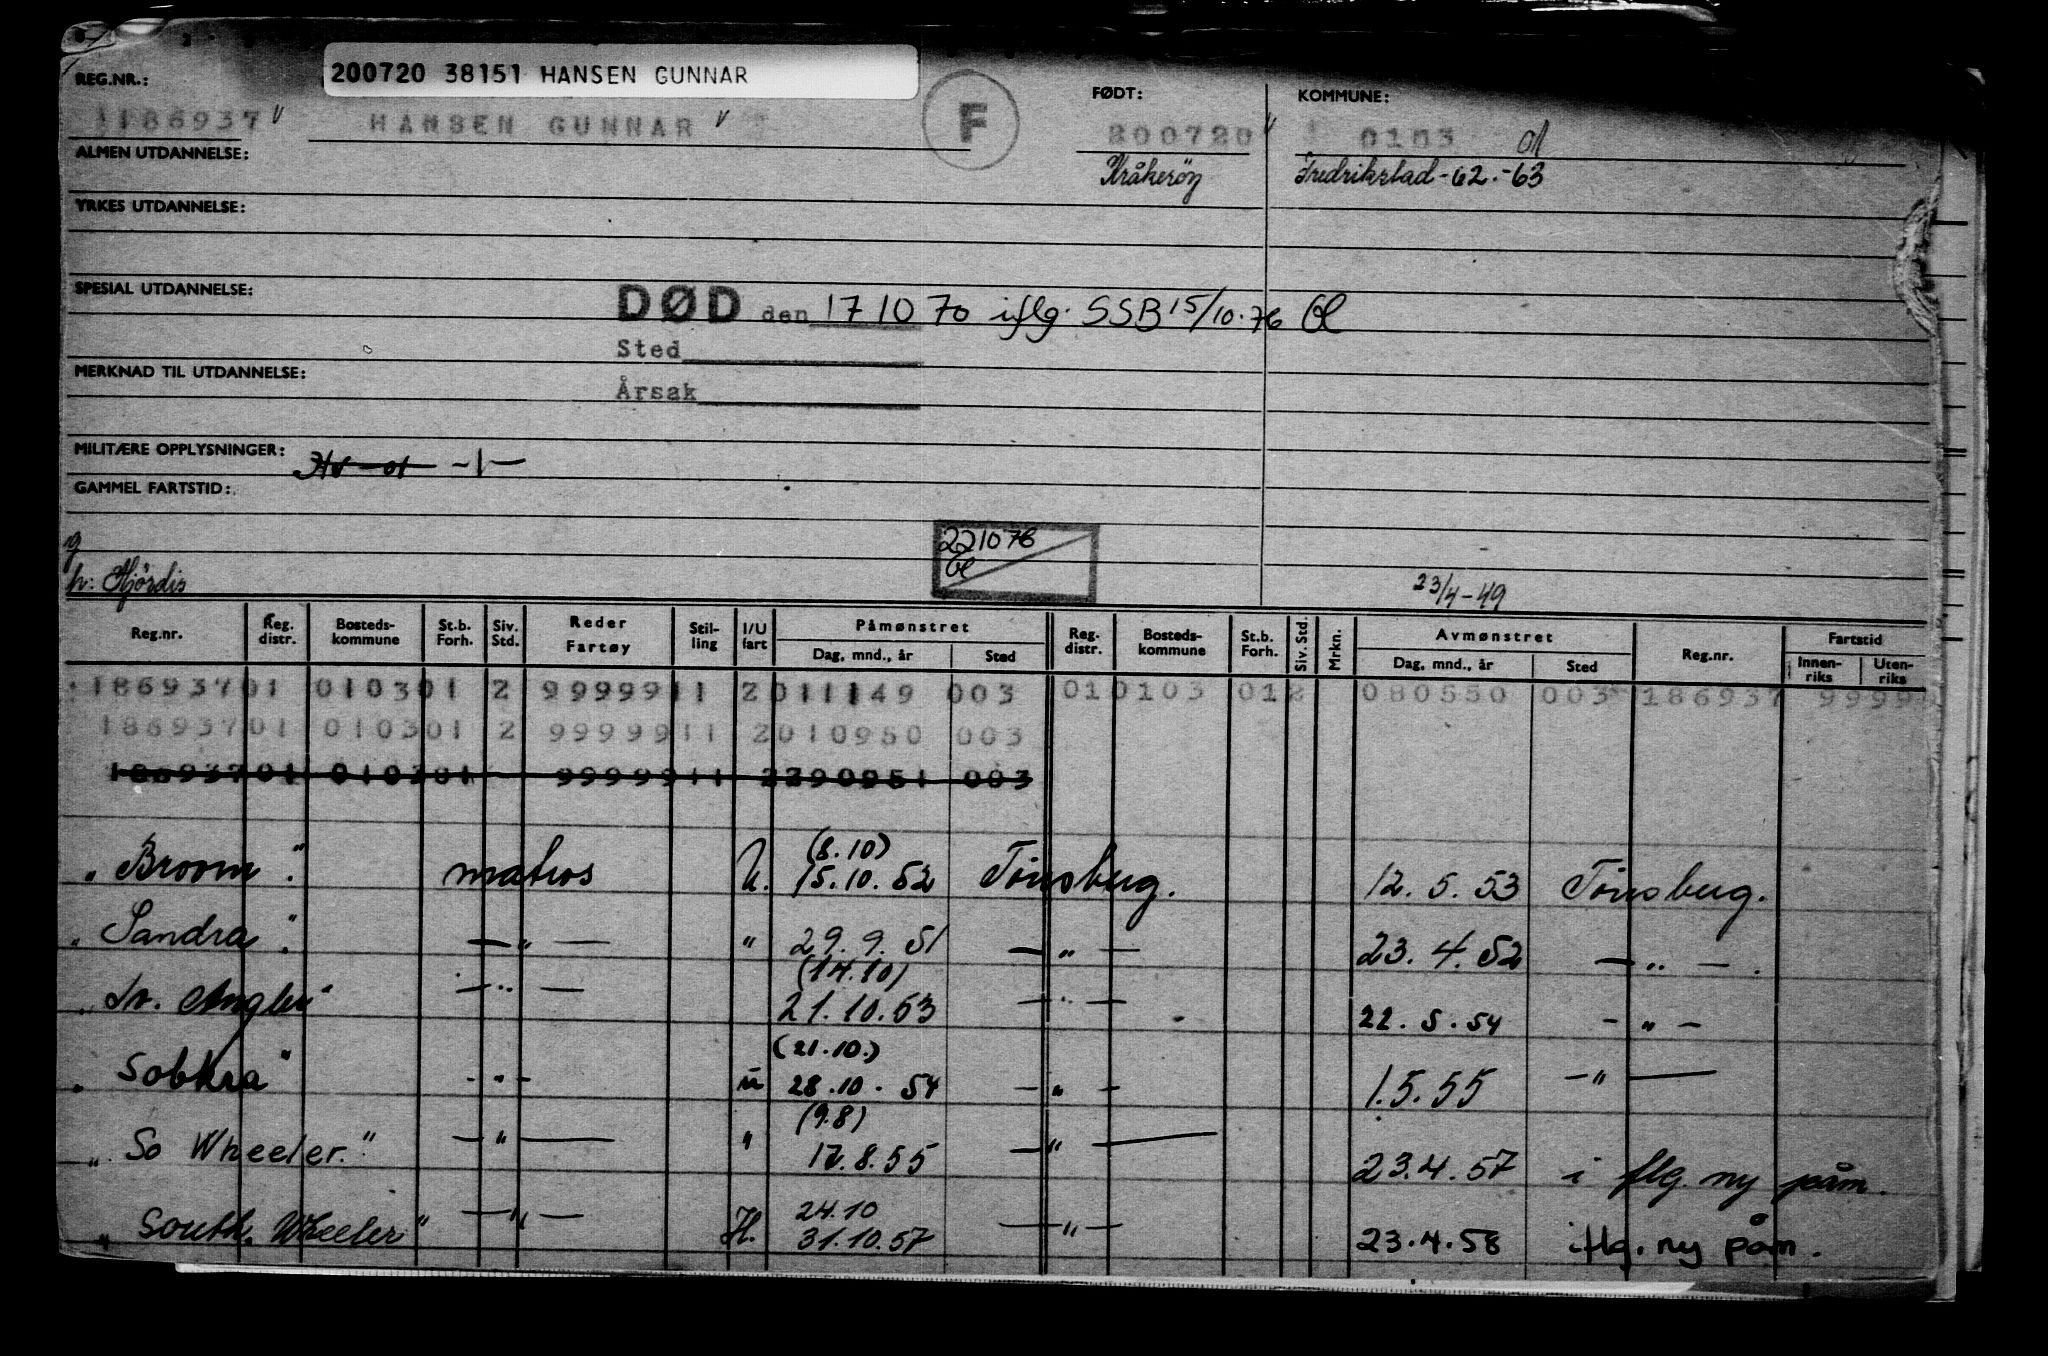 200720 38151 HANSEN GUNNAR
REG.NR.: FØDT: KOMMUNE:
1186937 v HANSEN GUNNAR v F 200720 v 0103 01
ALMEN UTDANNELSE: Kråkerøy Fredrikstad-62.-63
YRKES UTDANNELSE:
SPESIAL UTDANNELSE: DØD den 17 10 70 iflg. SSB 15/10.76
Sted
MERKNAD TIL UTDANNELSE:
Årsak
MILITÆRE OPPLYSNINGER: -1-
GAMMEL FARTSTID:
g 221076
h: Hjördis 23/4-49
Reg.nr. Reg. distr. Bosteds-kommune St.b. Forh. Siv. Std. Reder Fartøy Stil-ling I/U fart Påmønstret Dag, mnd., år Sted Reg. distr. Bosteds-kommune St.b. Forh. Siv. Std. Mrkn. Avmønstret Dag, mnd., år Sted Reg.nr. Fartstid Innen-riks Uten-riks
18693701 010301 2 9999911 2011149 003 010103 012 080550 003 186937 9999
18693701 010301 2 9999911 2010950 003
18693701 010301 9999911 2290951 003
(8.10)
"Broom". matros U. 15.10.52 Tönsberg. 12.5.53 Tönsberg.
"Sandra". —"— " 29.9.51 —"— 23.4.52 —"—.
(14.10)
—"— 21.10.53 —"— 22.5.54 -"-
(21.10.)
"Sobkra" -"- u 28.10.54 -"- 1.5.55 -"—
(9.8)
"So Wheeler." —"— " 17.8.55 —"— 23.4.57 iflg ny påm.
24.10
"South. Wheeler" —"— H. 31.10.57 —"— 23.4.58 iflg. ny påm.